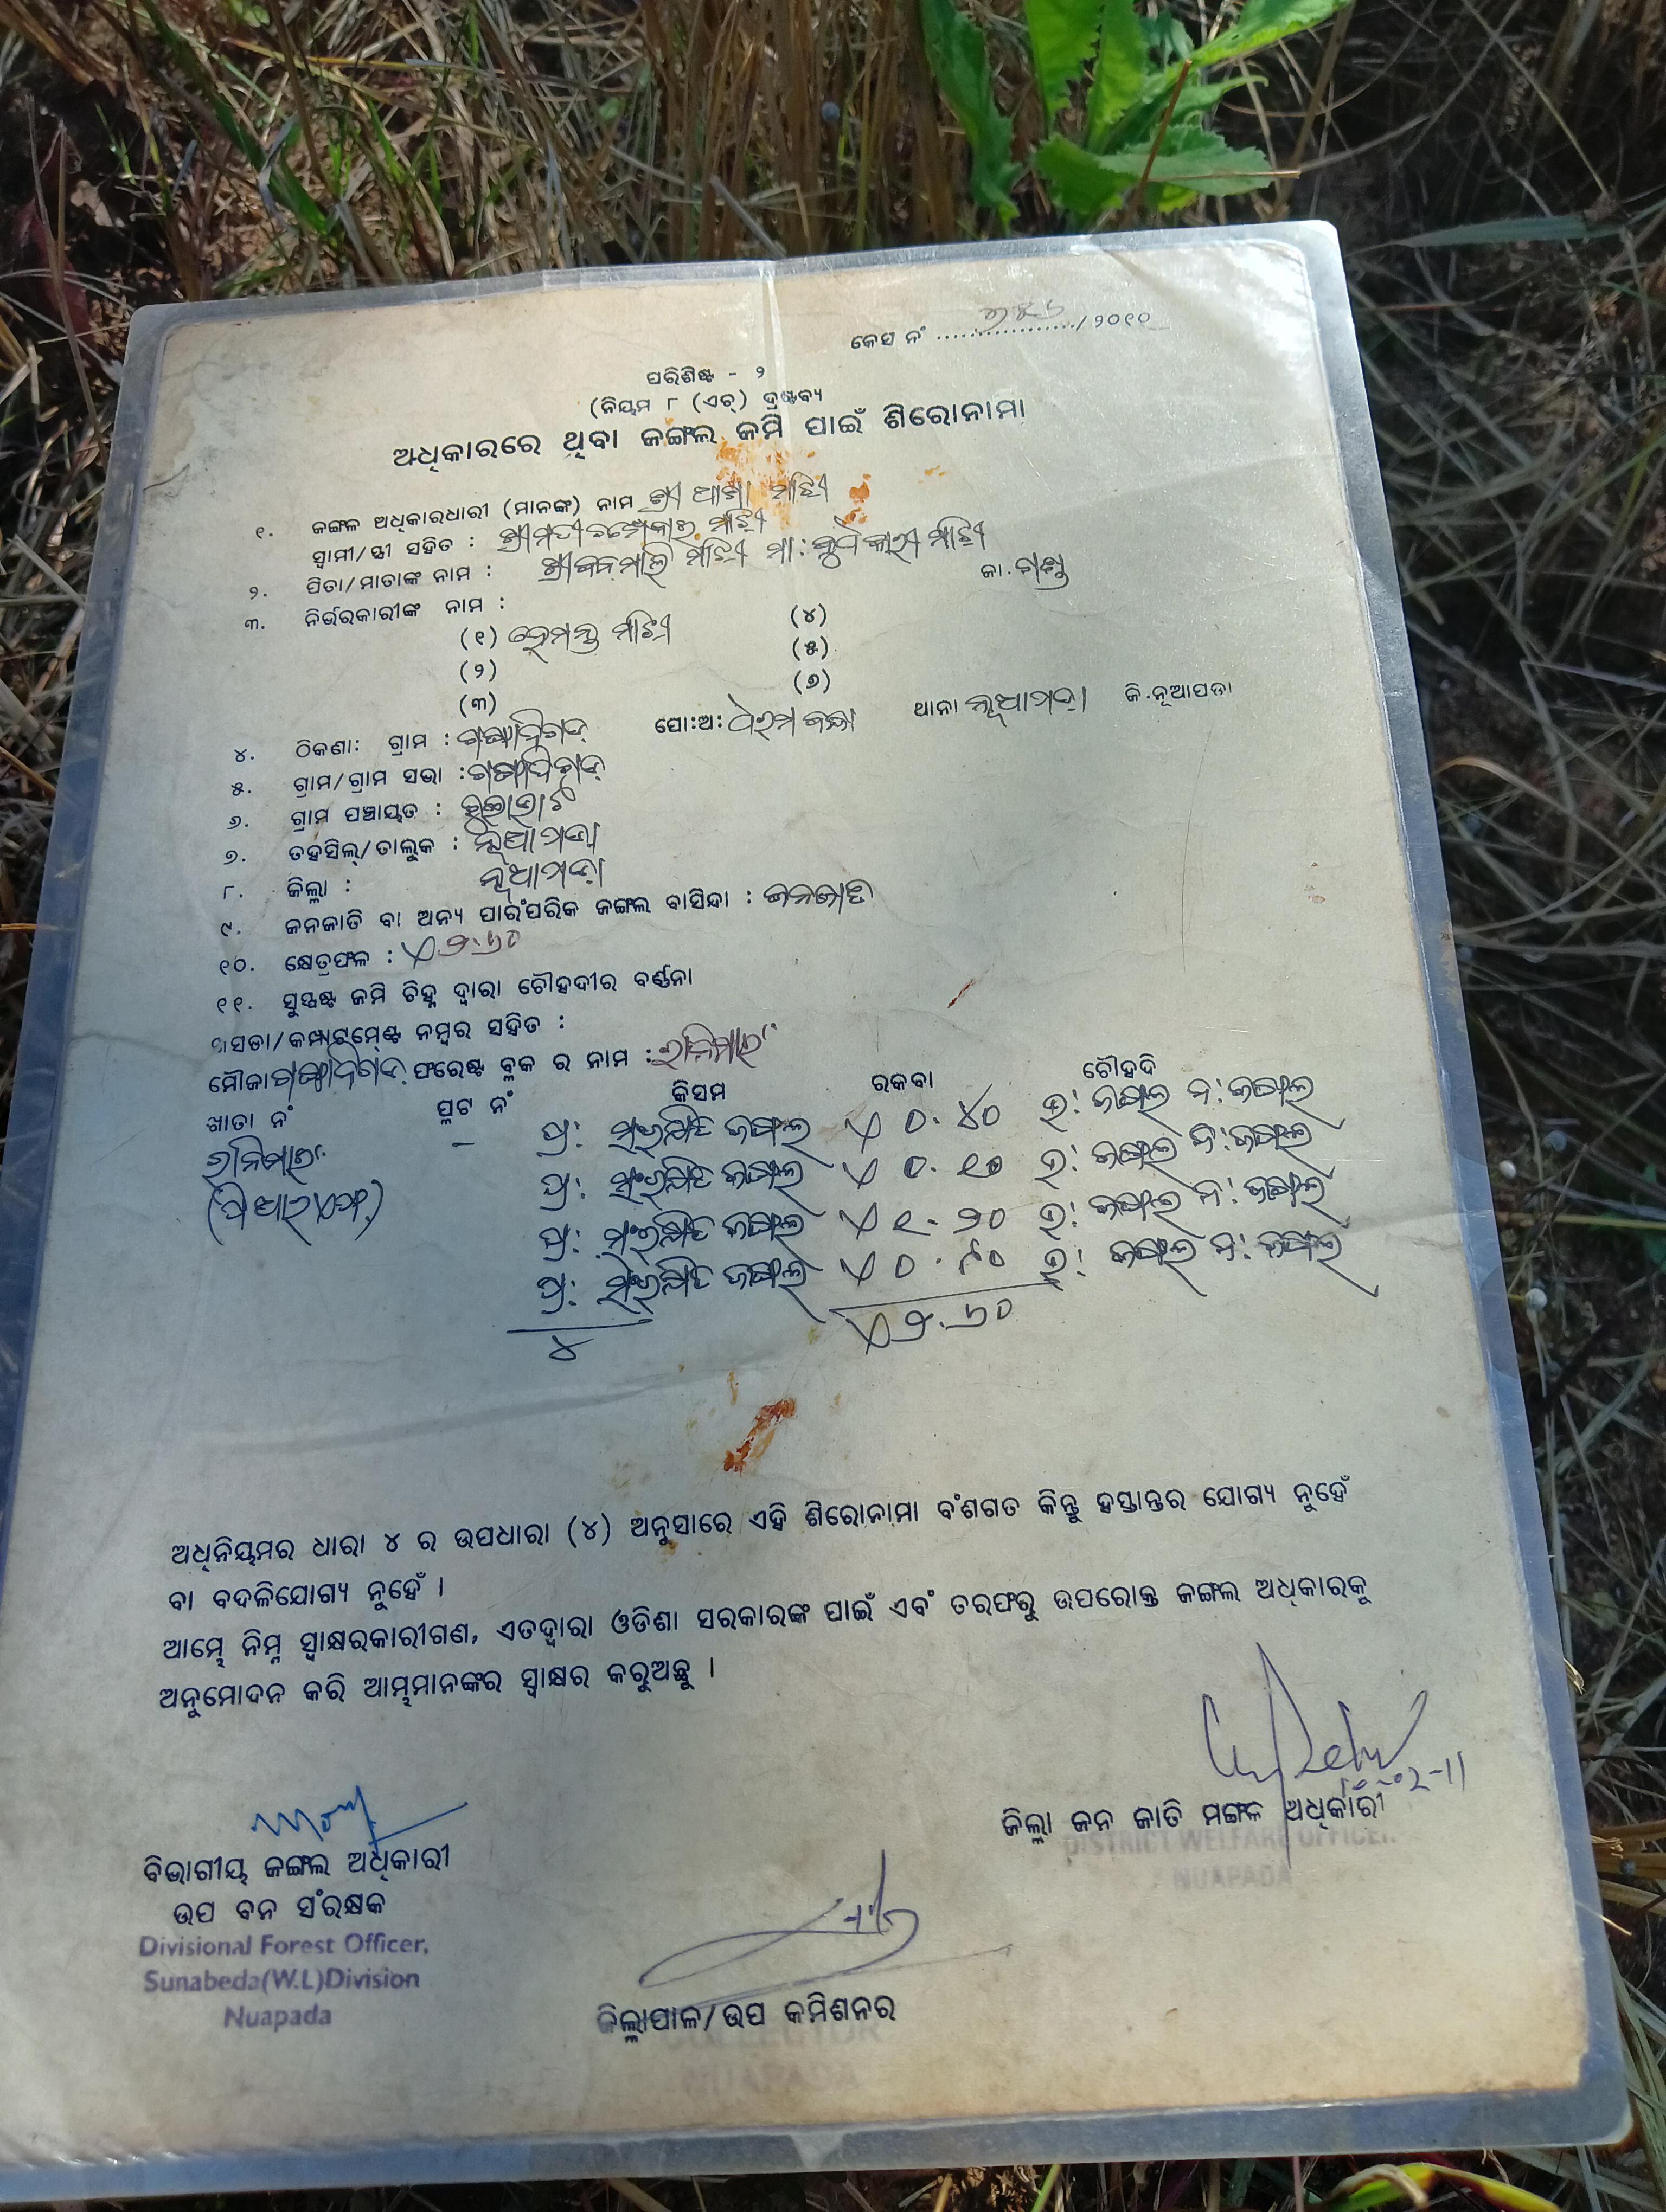 କେସ ନଂ ................./୨୦୧୧
ପରିଶିଷ୍ଟ - ୨
(ନିୟମ ୮ (ଏଚ୍) ଦ୍ରଷ୍ଟବ୍ୟ
ଅଧିକାରରେ ଥିବା ଜଙ୍ଗଲ ଜମି ପାଇଁ ଶିରୋନାମା
୧. ଜଙ୍ଗଳ ଅଧିକାରଧାରୀ (ମାନଙ୍କ) ନାମ ଶ୍ରୀ ମାଝି
ସ୍ୱାମୀ/ସ୍ତ୍ରୀ ସହିତ : ଶ୍ରୀମତୀ ମାଝି
୨. ପିତା/ମାତାଙ୍କ ନାମ : ଶ୍ରୀ ବନମାଳି ମାଝି ମା: ମାଝି
ଜା. ଗଣ୍ଡ
୩. ନିର୍ଭରକାରୀଙ୍କ ନାମ :
(୧) ହେମନ୍ତ ମାଝି (୪)
(୨) (୫)
(୩) (୬)
୪. ଠିକଣା: ଗ୍ରାମ : ପୋ:ଅ: ଧରମବନ୍ଧା ଥାନା ନୂଆପଡ଼ା ଜି.ନୂଆପଡା
୫. ଗ୍ରାମ/ଗ୍ରାମ ସଭା :
୬. ଗ୍ରାମ ପଞ୍ଚାୟତ :
୭. ତହସିଲ୍/ତାଲୁକ : ନୂଆପଡ଼ା
୮. ଜିଲ୍ଲା : ନୂଆପଡ଼ା
୯. ଜନଜାତି ବା ଅନ୍ୟ ପାରଂପରିକ ଜଙ୍ଗଲ ବାସିନ୍ଦା : ଜନଜାତି
୧୦. କ୍ଷେତ୍ରଫଳ : ଏ ୨.୬୦
୧୧. ସୁସ୍ପଷ୍ଟ ଜମି ଚିହ୍ନ ଦ୍ୱାରା ଚୌହଦୀର ବର୍ଣ୍ଣନା
ଖସଡା/କମ୍ପାଟମେଣ୍ଟ ନମ୍ବର ସହିତ :
ମୌଜା ଫରେଷ୍ଟ ବ୍ଳକ ର ନାମ :
ଖାତା ନଂ ପ୍ଳଟ ନଂ କିସମ ରକବା ଚୌହଦି
– ପ୍ର: ସଂରକ୍ଷିତ ଜଙ୍ଗଲ ଏ ୦.୪୦ ଉ: ଜଙ୍ଗଲ ଦ: ଜଙ୍ଗଲ
ପ୍ର: ସଂରକ୍ଷିତ ଜଙ୍ଗଲ ଏ ୦.୧୦ ଉ: ଜଙ୍ଗଲ ଦ: ଜଙ୍ଗଲ
ପ୍ର: ସଂରକ୍ଷିତ ଜଙ୍ଗଲ ଏ ୧.୨୦ ଉ: ଜଙ୍ଗଲ ଦ: ଜଙ୍ଗଲ
ପ୍ର: ସଂରକ୍ଷିତ ଜଙ୍ଗଲ ଏ ୦.୯୦ ଉ: ଜଙ୍ଗଲ ଦ: ଜଙ୍ଗଲ
୪ ଏ ୨.୬୦
ଅଧିନିୟମର ଧାରା ୪ ର ଉପଧାରା (୪) ଅନୁସାରେ ଏହି ଶିରୋନାମା ବଂଶଗତ କିନ୍ତୁ ହସ୍ତାନ୍ତର ଯୋଗ୍ୟ ନୁହେଁ
ବା ବଦଳିଯୋଗ୍ୟ ନୁହେଁ ।
ଆମ୍ଭେ ନିମ୍ନ ସ୍ୱାକ୍ଷରକାରୀଗଣ, ଏତଦ୍ୱାରା ଓଡିଶା ସରକାରଙ୍କ ପାଇଁ ଏବଂ ତରଫରୁ ଉପରୋକ୍ତ ଜଙ୍ଗଲ ଅଧିକାରକୁ
ଅନୁମୋଦନ କରି ଆମ୍ଭମାନଙ୍କର ସ୍ୱାକ୍ଷର କରୁଅଛୁ ।
ଜିଲ୍ଲା ଜନ ଜାତି ମଙ୍ଗଳ ଅଧିକାରୀ
DISTRICT WELFARE OFFICER,
NUAPADA
ବିଭାଗୀୟ ଜଙ୍ଗଲ ଅଧିକାରୀ
ଉପ ବନ ସଂରକ୍ଷକ
Divisional Forest Officer,
Sunabeda(W.L)Division
Nuapada
ଜିଲ୍ଲାପାଳ/ଉପ କମିଶନର
COLLECTOR
NUAPADA